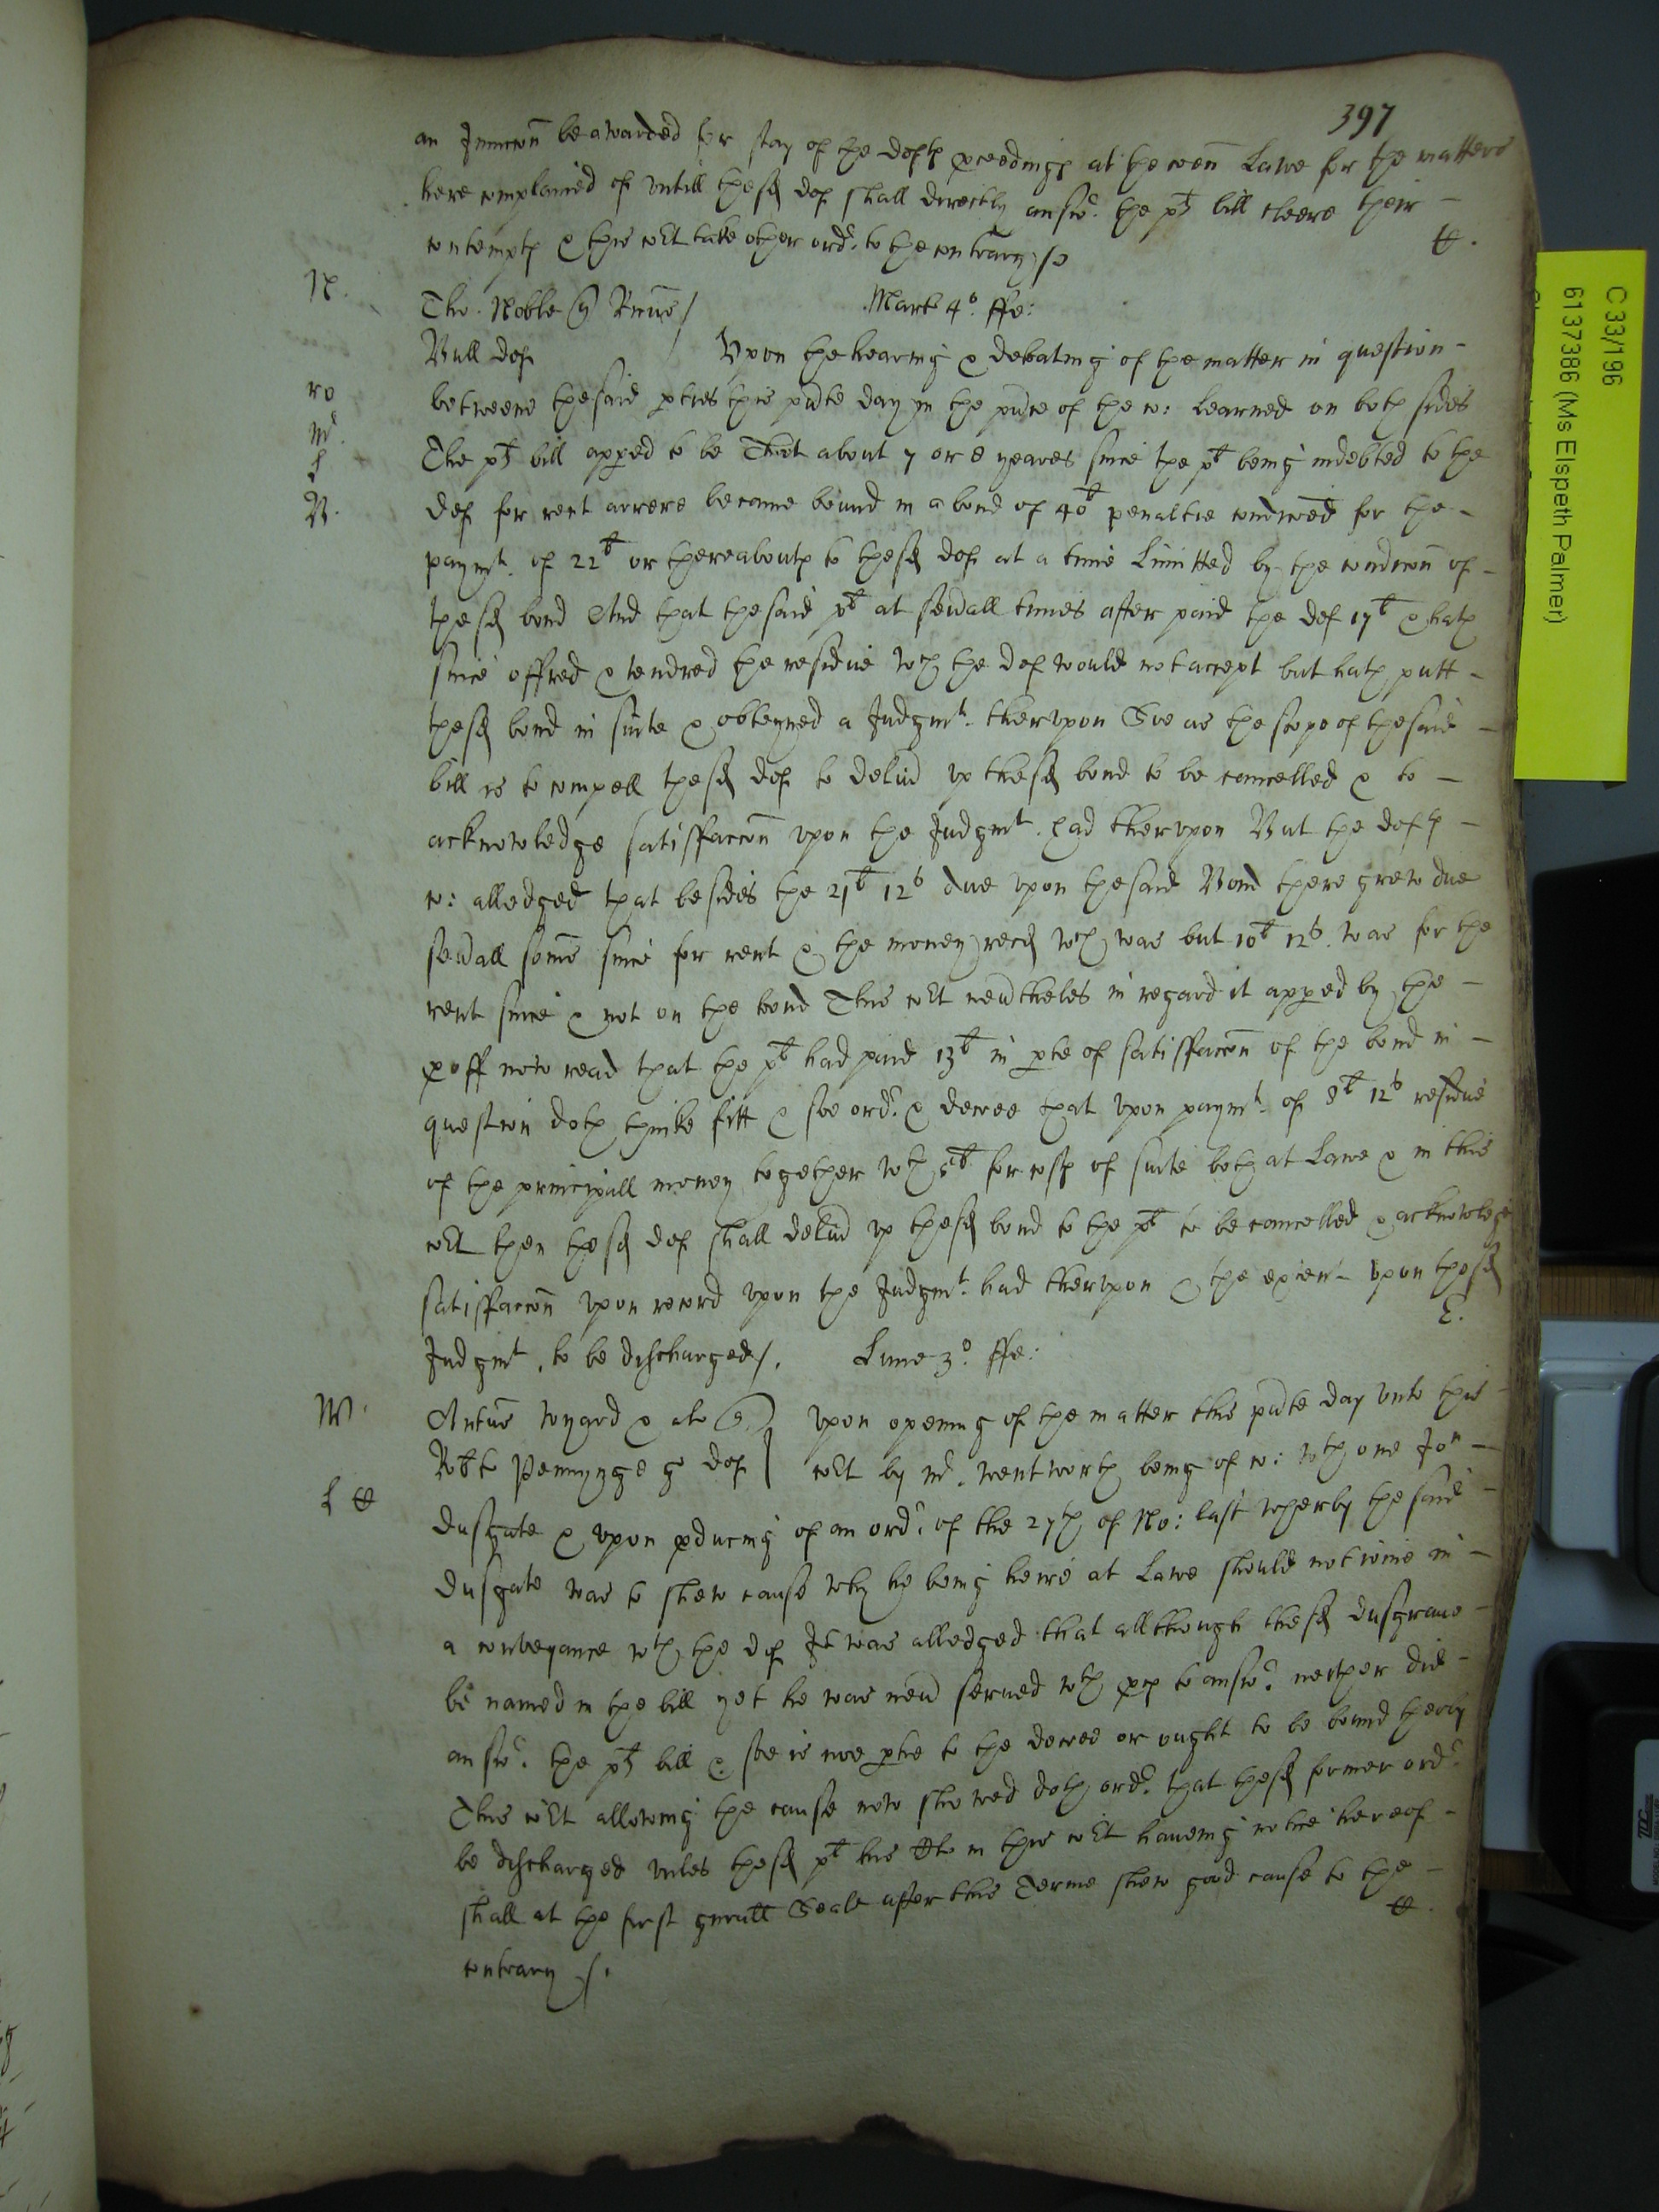 397
an Iniuncon be awarded for stay of the defts pceedings at the coen Lawe for the matters
here complained of vntill the sd def shall directly answ. the plts bill cleere their -
contempts & this cot take other ord. to the contrary /
N. Tho. Noble plt Marti 4o. ffe:
Bull def Vpon the hearing & debating of the matter in question -
ro betweene the said pties this pnte day in the pnce of the co: learned on both sides
Mr. The plts bill appred to be That about 7 or 8 yeares since the plt being indebted to the
L
B. def for rent arrere became bound in a bond of 40l penaltie condiconed for the -
paymt. of 22l or thereabouts to the sd def at a time Limitted by the condicon of -
the sd bond And that the said plt at seuall times after paid the def 17l & hath
since offred & tendred the residue wch the def would not accept but hath putt -
the sd bond in suite & obteyned a Judgmt. thervpon Soe as the scope of the said -
bill is to compell the sd def to deliu vp the sd bond to be cancelled & to -
acknowledge satisfaccon vpon the Judgmt. had thervpon But the defts -
co: alledged that besides the 21l 12s due vpon the said Bond there grew due
seuall somes since for rent & the money recd wch was but 10l 12s. was for the
rent since & not on the bond This cot neutheles in regard it appred by the -
proffs now read that the plt had paid 13l in pte of satisfaccon of the bond in -
question doth thinke fitt & soe ord. & decree that vpon paymt. of 8l 12s residue
of the principall money together wth 5l for costs of suite both at Lawe & in this
cot then the sd def shall deliu vp the sd bond to the plt to be cancelled & acknowledge
satisfaccon vpon record vpon the Judgmt. had thervpon & the extent vpon the sd
E.
Judgmt. to be discharged /. Lune 3o. ffe:
W. wyard & als plts vpon opening of the matter this pnte day vnto this
Robte def cot by Mr. wentworth being of co: wth one Jon -
L
Dusgate & vpon pducing of an ord. of the 27th of No: last wherby the said -
Dusgate was to shew cause why he being heire at Lawe should not ioine in -
a conveyance wth the def It was alledged that allthough the sd Dusgraue -
be named in the bill yet he was neu serued wth pces to answ. neither did -
answ. the plts bill & soe is noe ptie to the decree or ought to be bound therby
This cot allowing the cause now shewed doth ord. that the sd former ord.
be discharged vnles the sd plt his Atto in this cot haueing notice hereof -
shall at the first gnrall Seale after this Terme shew good cause to the -
contrary /.
C 33/196
6137386 (Ms Elspeth Palmer)